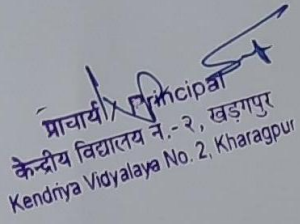 प्राचार्य/Principal
केन्द्रीय विद्यालय नं.-२, खड़गपुर
Kendriya Vidyalaya No. 2, Kharagpur